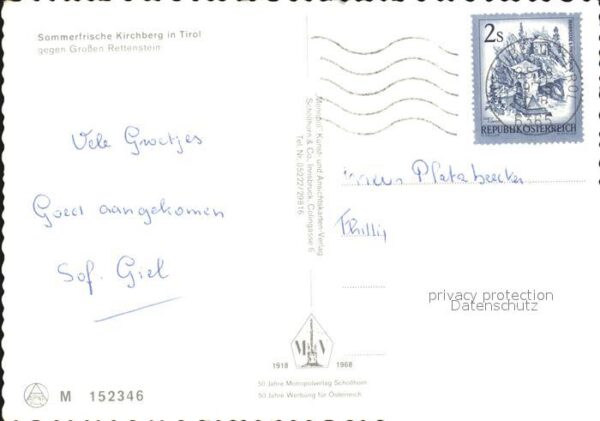 Sommerfrische Kirchberg in Tirol
gegen Großen Rettenstein
Vele Groetjes
Goed aangekomen
Sof. Giel
"Monopol" Kunst- und Ansichtskarten-Verlag
Schöllhorn & Co., Innsbruck,
Tel. Nr. 05222/29816
2s
REPUBLIK ÖSTERREICH
6365
privacy protection
Datenschutz
M V
1918 1968
50 Jahre Monopolverlag Schöllhorn
50 Jahre Werbung für Österreich
M 152346